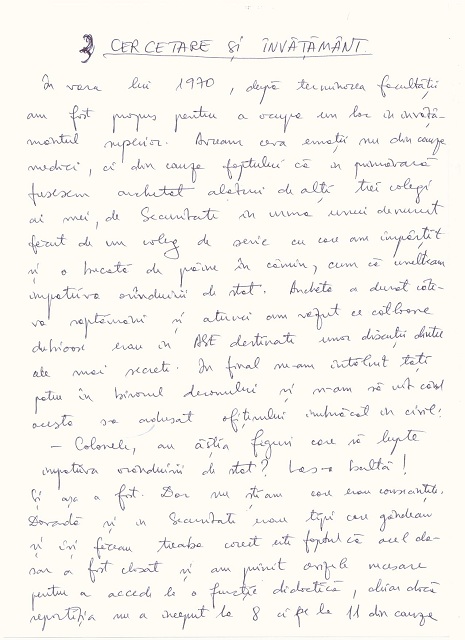 3 CERCETARE ȘI ÎNVĂȚĂMÂNT.
În vara lui 1970, după terminarea facultății
am fost propus pentru a ocupa un loc în învăță-
mântul superior. Aveam ceva emoții nu din cauza
mediei, ci din cauza faptului că în primăvară
fusesem anchetat alături de alți trei colegi
ai mei, de Securitate în urma unui denunț
făcut de un coleg de serie cu care am împărțit
și o bucată de pâine în cămin, cum că unelteam
împotriva orânduirii de stat. Ancheta a durat câte-
va săptămâni și atunci am văzut ce culoare
erau în ASE destinate unor discuții dintre
ale mai secrete. În final ne-am întâlnit toți
patru în biroul decanului și n-am să uit când
acesta s-a adresat ofițerului îmbrăcat în civil:
– Colonele, au ăștia figuri care să lupte
împotriva orânduirii de stat? Las-o baltă!
Și așa a fost. Dar nu știam care erau consecințele.
Dovadă și în Securitate erau tipi care gândeau
și își făceau treaba corect este faptul că acel do-
sar a fost clasat și am primit avizele necesare
pentru a accede la o funcție didactică, chiar dacă
repartiția nu a început la 8 ci pe la 11 din cauza